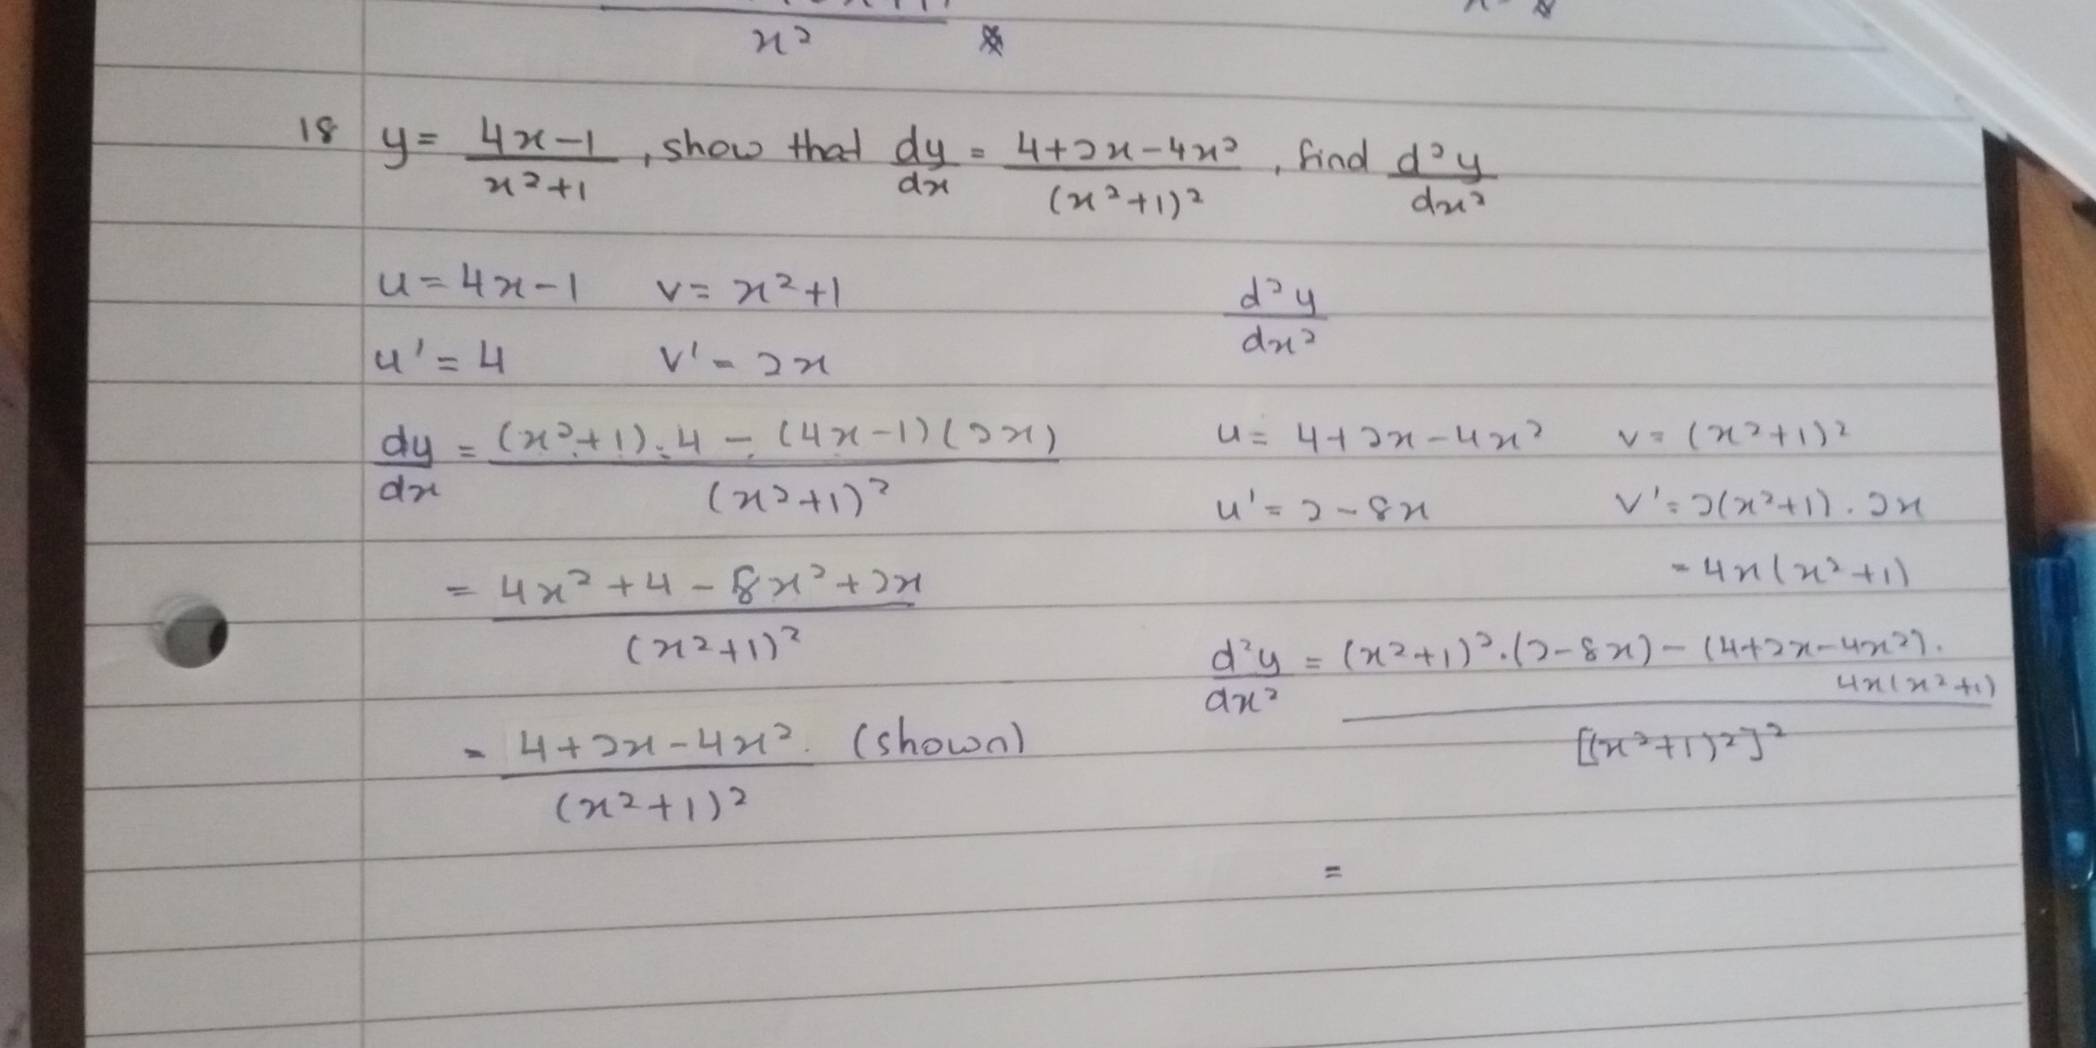 x²
18 y = 4x-1 / x²+1 , show that dy/dx = 4+2x-4x² / (x²+1)² , find d²y/dx²
u = 4x-1 v = x²+1
u' = 4 v' = 2x
dy/dx = (x²+1).4 - (4x-1)(2x) / (x²+1)²
= 4x²+4-8x²+2x / (x²+1)²
= 4+2x-4x² / (x²+1)² (shown)
d²y/dx²
u = 4+2x-4x² v = (x²+1)²
u' = 2-8x v' = 2(x²+1).2x
= 4x(x²+1)
d²y/dx² = (x²+1)².(2-8x) - (4+2x-4x²). 4x(x²+1) / [(x²+1)²]²
=